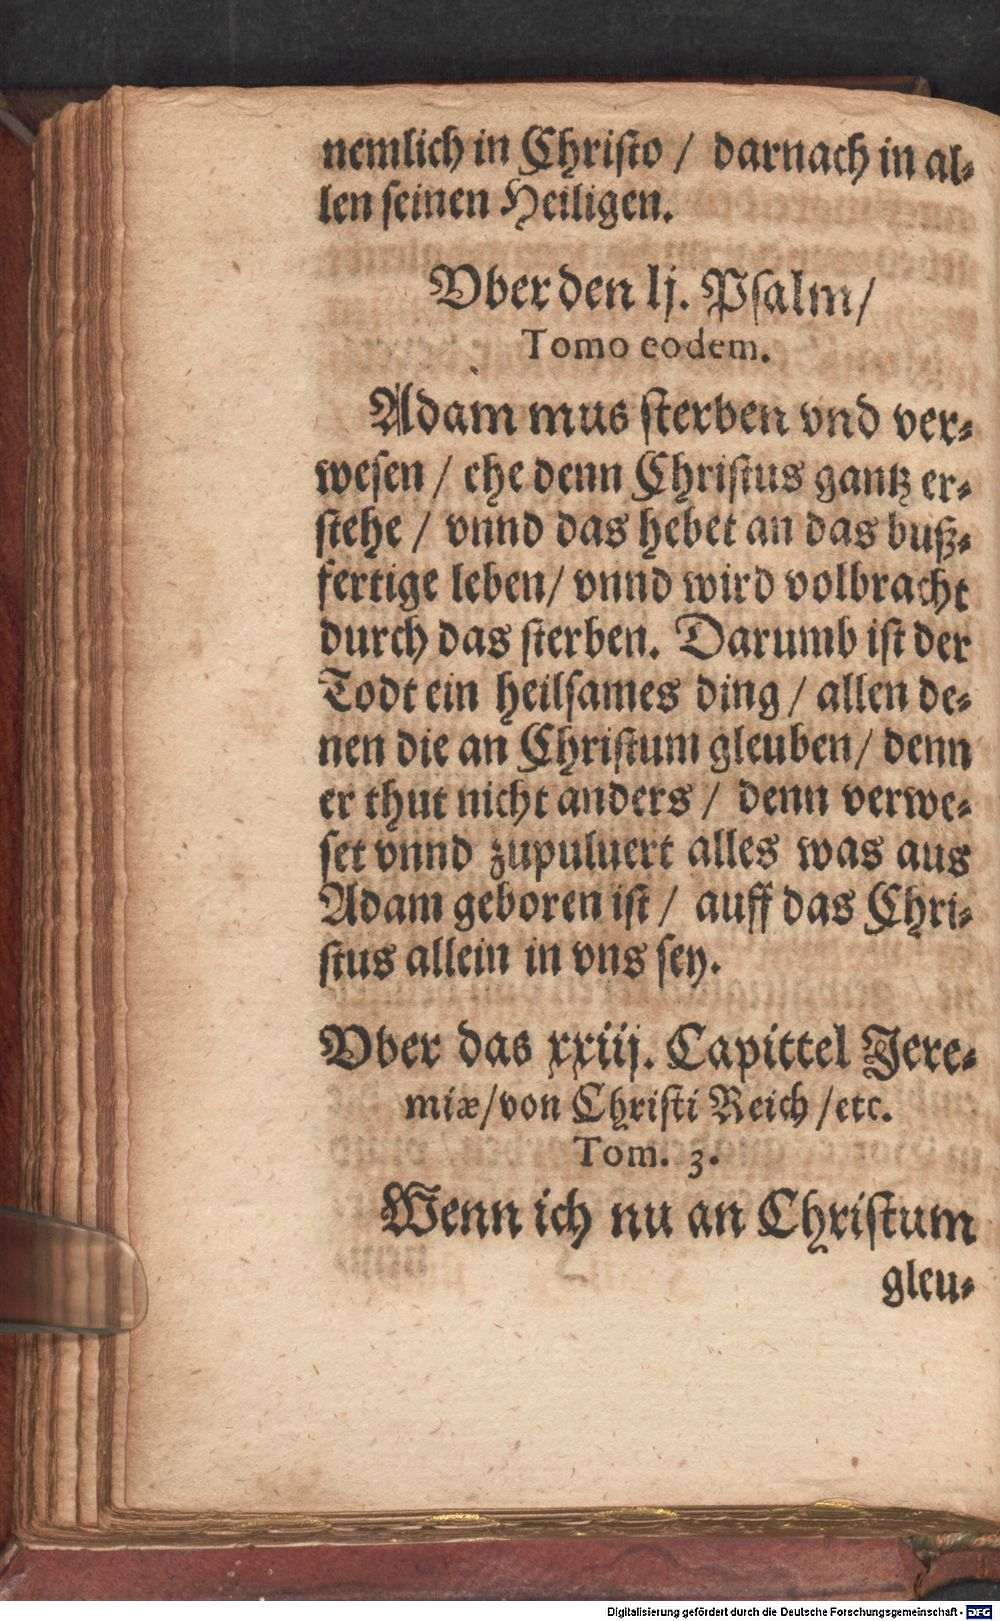 nemlich in Christo / darnach in al-
len seinen Heiligen.
Vber den lj. Psalm/
Tomo eodem.
Adam mus sterben vnd ver-
wesen / ehe denn Christus gantz er-
stehe / vnnd das hebet an das buß-
fertige leben/ vnnd wird volbracht
durch das sterben. Darumb ist der
Todt ein heilsames ding / allen de-
nen die an Christum gleuben/ denn
er thut nicht anders / denn verwe-
set vnnd zupuluert alles was aus
Adam geboren ist / auff das Chri-
stus allein in vns sey.
Vber das xxiij. Capittel Jere-
miæ/von Christi Reich /etc.
Tom. 3.
Wenn ich nu an Christum
gleu-
Digitalisierung gefördert durch die Deutsche Forschungsgemeinschaft - DFG